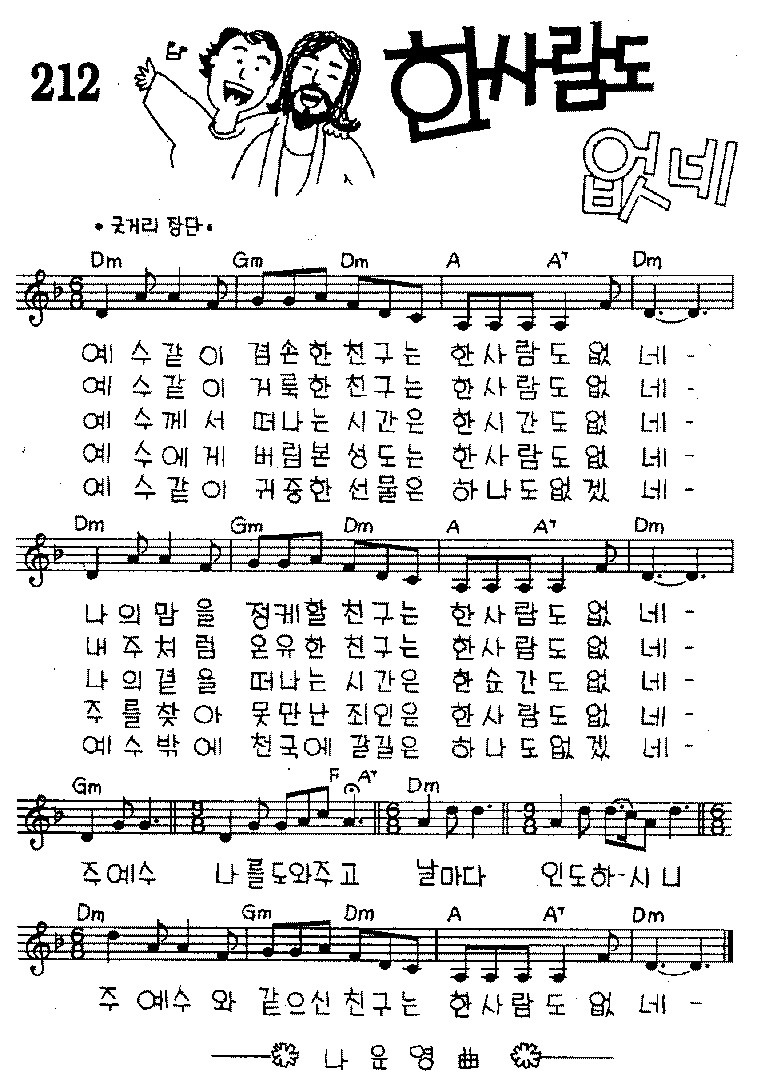 212
한사람도
없네
• 굿거리 장단 •
Dm Gm Dm A A7 Dm
예수같이 겸손한 친구는 한사람도 없네 -
예수같이 거룩한 친구는 한사람도 없네 -
예수께서 떠나는 시간은 한시간도 없네 -
예수에게 버림본 성도는 한사람도 없네 -
예수같이 귀중한 선물은 하나도없겠네 -
Dm Gm Dm A A7 Dm
나의맘을 정케할 친구는 한사람도 없네 -
내주처럼 온유한 친구는 한사람도 없네 -
나의곁을 떠나는 시간은 한숨간도 없네 -
주를찾아 못만난 죄인은 한사람도 없네 -
예수밖에 천국에 갈길은 하나도없겠네 -
Gm F A7 Dm
주예수 나를도와주고 날마다 인도하-시니
Dm Gm Dm A A7 Dm
주예수와 같으신친구는 한사람도 없네 -
나운영 曲